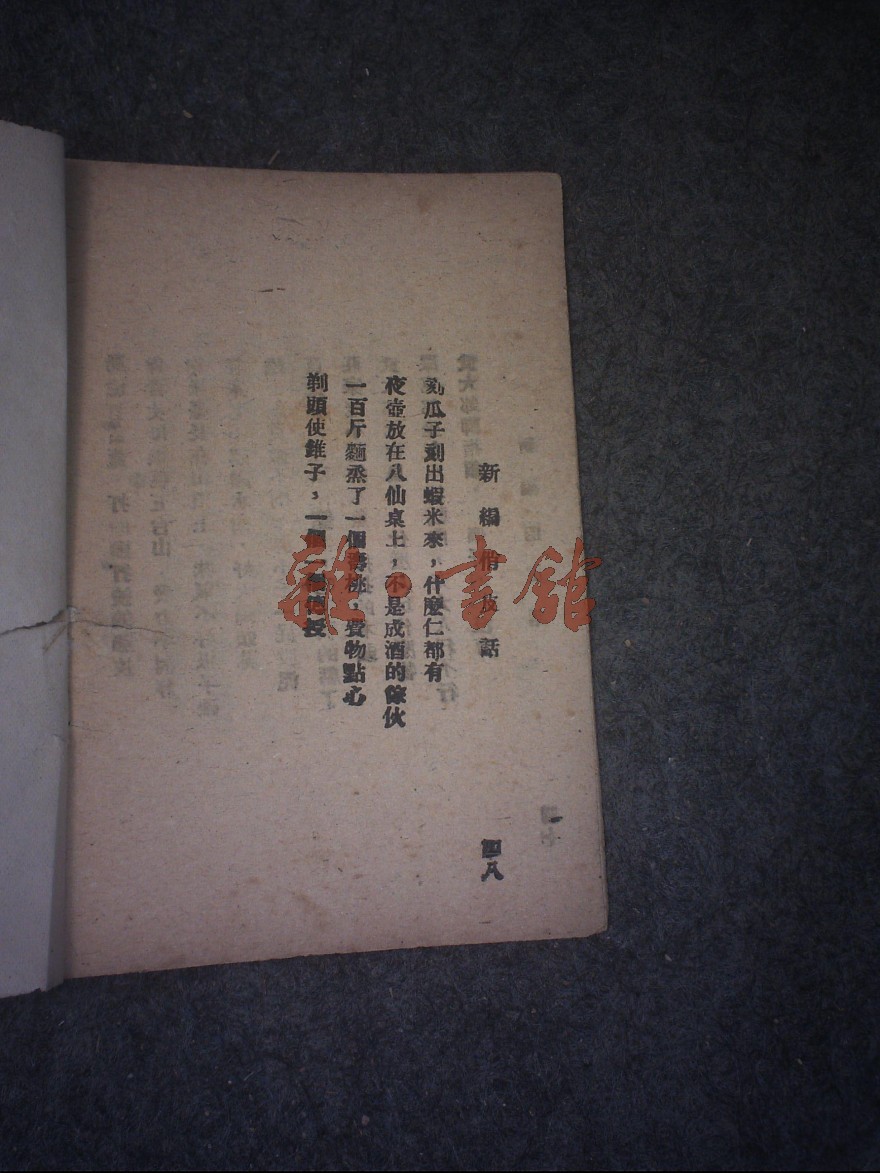 新編俏皮話
刻瓜子剥出蝦米來，什麼仁都有
夜壺放在八仙桌上，不是成酒的傢伙
一百斤麵蒸了一個壽桃，費物點心
剃頭使錐子，一個 傳授
四八
雜·書館